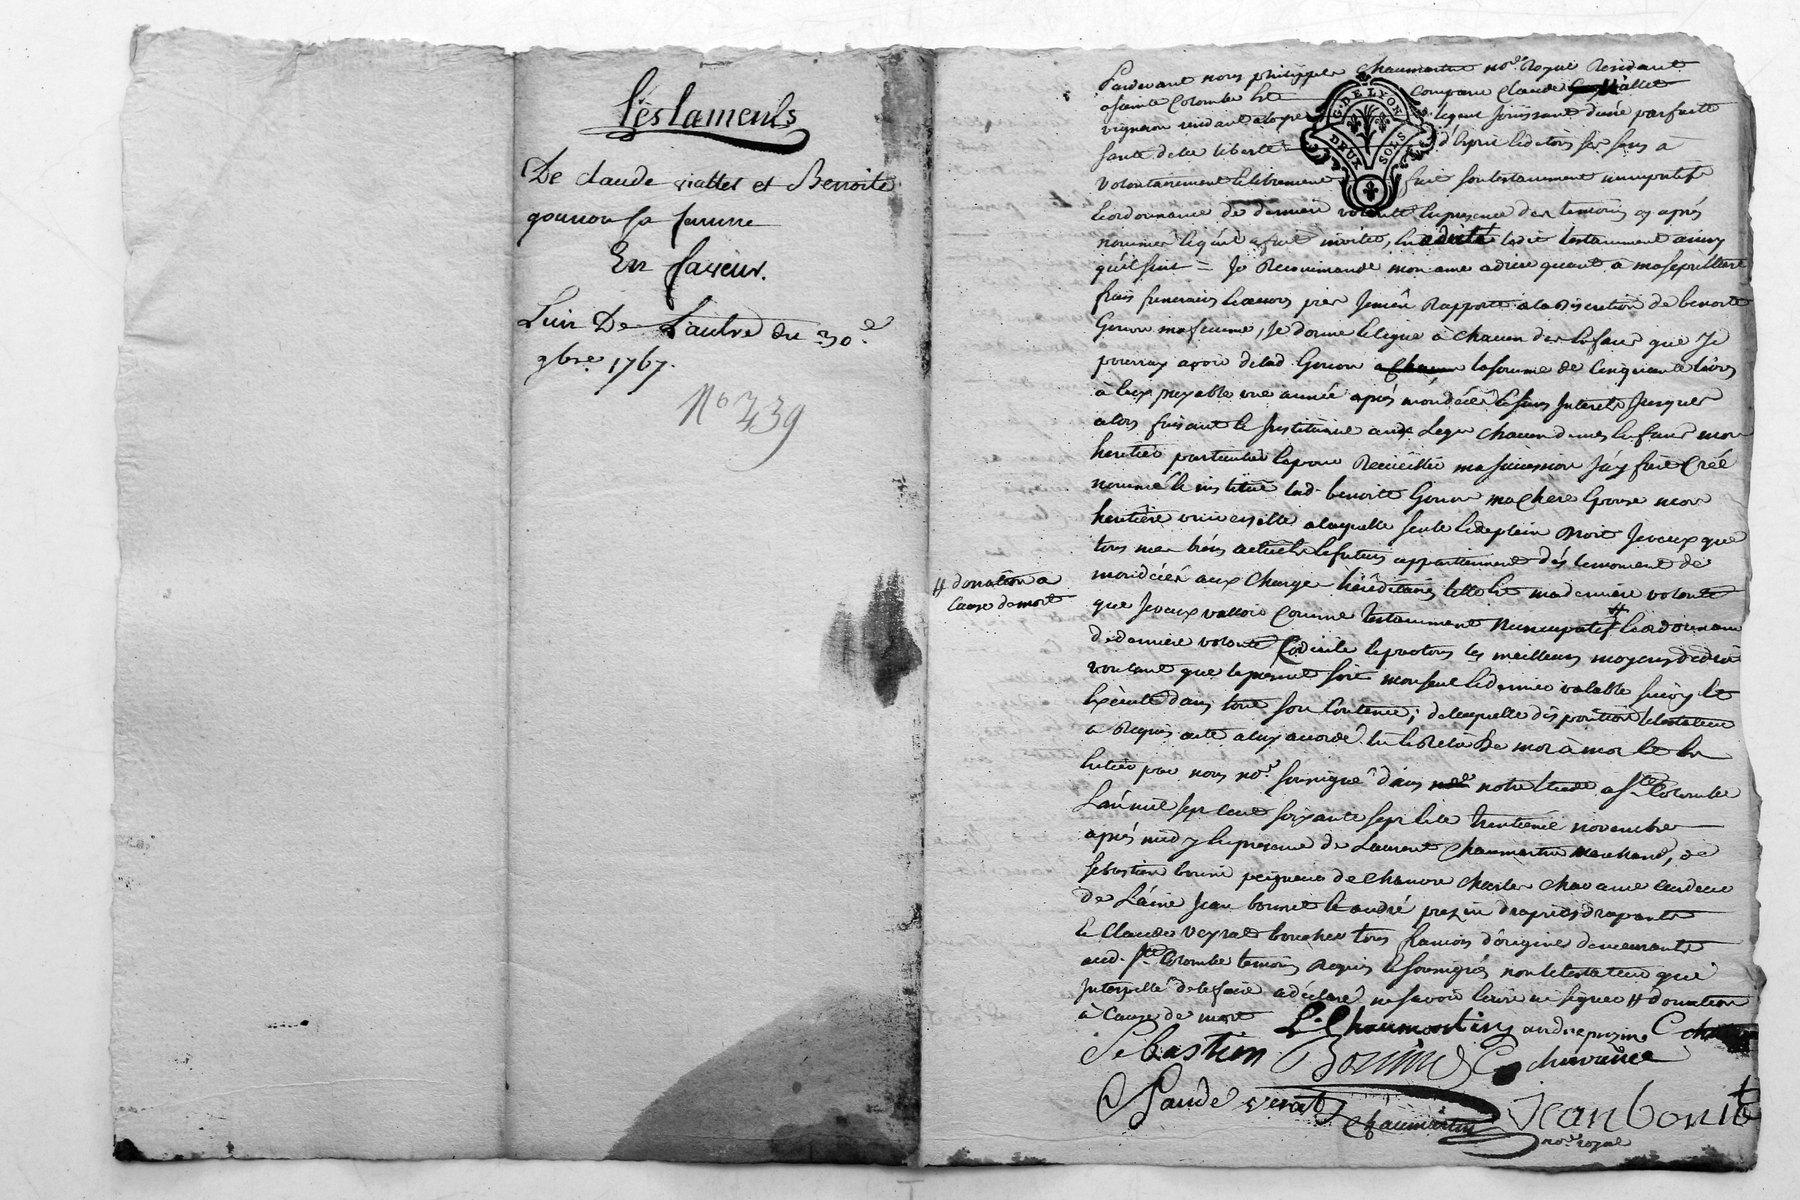 Testaments
De claude viallet et Benoite
gounon sa femme
En faveur
L'un De L'autre du 30e
9bre 1767.
No 339
# donation a
cause de mort
Pardevant nous philippe chaumartin nore Royal Residant
a sainte Colombe et comparu Claude viallet
vigneron residant lequel jouissant d'une parfaite
santé de sa liberté d'esprit et de tous ses sens a
volontairement et librement fait son testament nuncupatif
et ordonnance de derniere volonté en presence des temoins cy aprés
nommés lequel a fait inviter, ledit testament ainsy
qu'il suit = Je Recommande mon ame a dieu quant a ma sepulture
frais funeraires et oeuvres pies Je m'en Rapporte a la Discretion de benoite
Gonon ma femme, Je donne et legue à chacun des enfans que Je
pourray avoir de lad. Gonon la somme de Cinquante livres
à eux payable une année aprés mon décés et sans Interets Jusques
alors faisant et Instituant aux Legs chacun de mes enfans mon
heritier particulier et pour Recueillir ma succession J'ay fait Créé
nommé et institué lad. benoite Gonon ma chere Epouse mon
heritière universelle a laquelle seule et de plein Droit Je veux que
tous mes biens actuels et futurs appartiennent dés le moment de
mon décés aux charges héréditaires telle est ma derniere volonté
que Je veux valloir Comme testament Nuncupatif # et ordonnance
de derniere volonté Codicile et par tous les meilleurs moyens de droit
voulant que le present soit mon seul et dernier valable suivy et
Exécuté dans tout son Contenu; de laquelle disposition le testateur
a Requis acte a luy accordé lu et Relu de mot à mot et en
entier par nous nore soussigné dans notre Etude a Ste Colombe
L'an mil sept cent soixante sept et le trentieme novembre
aprés midy en presence de Laurent Chaumartin Marchand, de
sebastien bonin peigneur de chanvre charles chavance cardeur
de Laine Jean bonnet et andré prezin drapiers drapants
et Claude veyrat boucher tous francois d'origine demeurants
aud. Ste Colombe temoins Requis et soussignés non le testateur qui
Interpellé de le faire a déclaré ne savoir Ecrire ni signer # donation
à Cause de mort L. Chaumartin andre prezin C cha
Sebastien Bonin C chavance
Claude verat Chaumartin Jean bonite
nore royal
G. DE LYON
DEUX SOLS